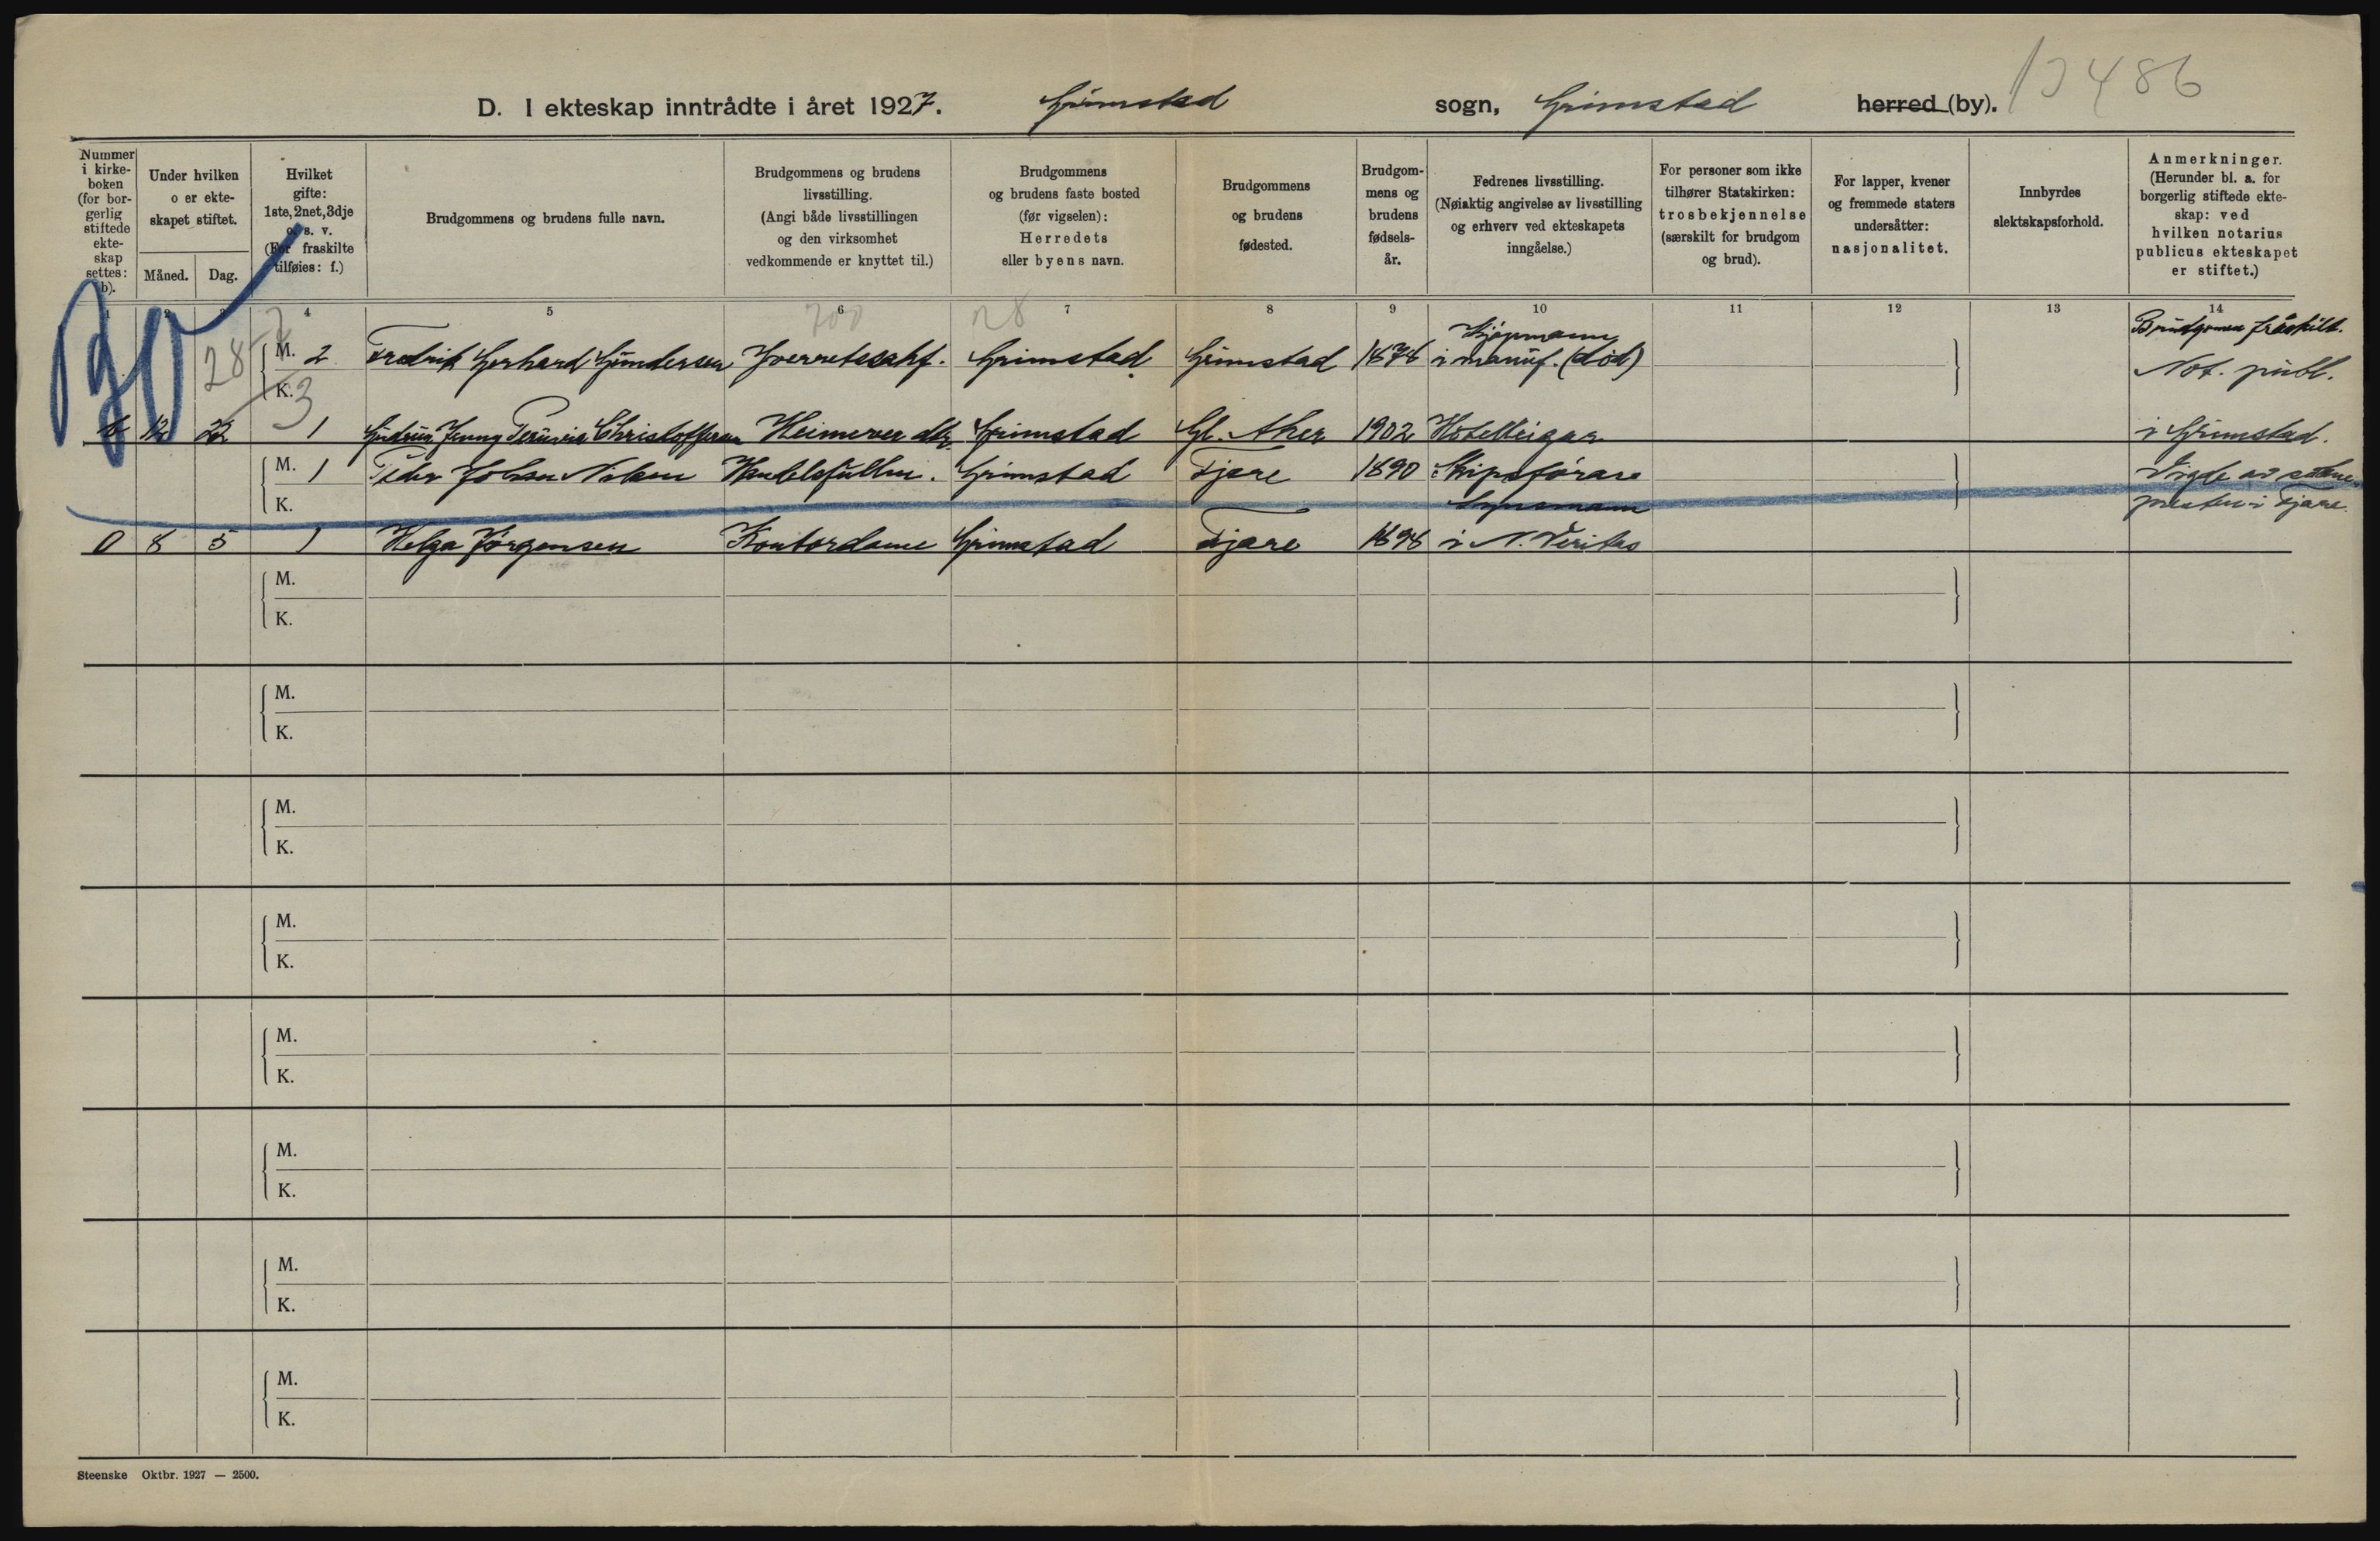 D. I ekteskap inntrådte i året 1927. Grimstad sogn, Grimstad herred (by). 13486
Nummer i kirkeboken (for borgerlig stiftede ekteskap settes: b).
Under hvilken o er ekteskapet stiftet.
Måned. Dag.
Hvilket gifte: 1ste, 2net, 3dje o. s. v. (For fraskilte tilføies: f.)
Brudgommens og brudens fulle navn.
Brudgommens og brudens livsstilling. (Angi både livsstillingen og den virksomhet vedkommende er knyttet til.)
Brudgommens og brudens faste bosted (før vigselen): Herredets eller byens navn.
Brudgommens og brudens fødested.
Brudgommens og brudens fødselsår.
Fedrenes livsstilling. (Nøiaktig angivelse av livsstilling og erhverv ved ekteskapets inngåelse.)
For personer som ikke tilhører Statskirken: trosbekjennelse (særskilt for brudgom og brud).
For lapper, kvener og fremmede staters undersåtter: nasjonalitet.
Innbyrdes slektskapsforhold.
Anmerkninger. (Herunder bl. a. for borgerlig stiftede ekteskap: ved hvilken notarius publicus ekteskapet er stiftet.)
1 2 3 4 5 6 7 8 9 10 11 12 13 14
700 28
28
M. 2 Fredrik Gerhard Gundersen Overretssakf. Grimstad Grimstad 1878 Kjøpmann i manuf. (død) Brudgomen fråskilt. Not. publ.
K.
b 12 22 1 Gudrun Jenny Christoffersen Heimever. Grimstad Gl. Aker 1902 Hotelleigar i Grimstad.
M. 1 Peder Nilsen Handelsfullm. Grimstad Fjære 1890 Skipsførare Vigde av sokne
K. presten i Fjære.
0 8 5 1 Helga Jørgensen Kontordame Grimstad Fjære 1898 Synsmann i N. Veritas
M.
K.
M.
K.
M.
K.
M.
K.
M.
K.
M.
K.
M.
K.
M.
K.
Steenske Oktbr. 1927 — 2500.